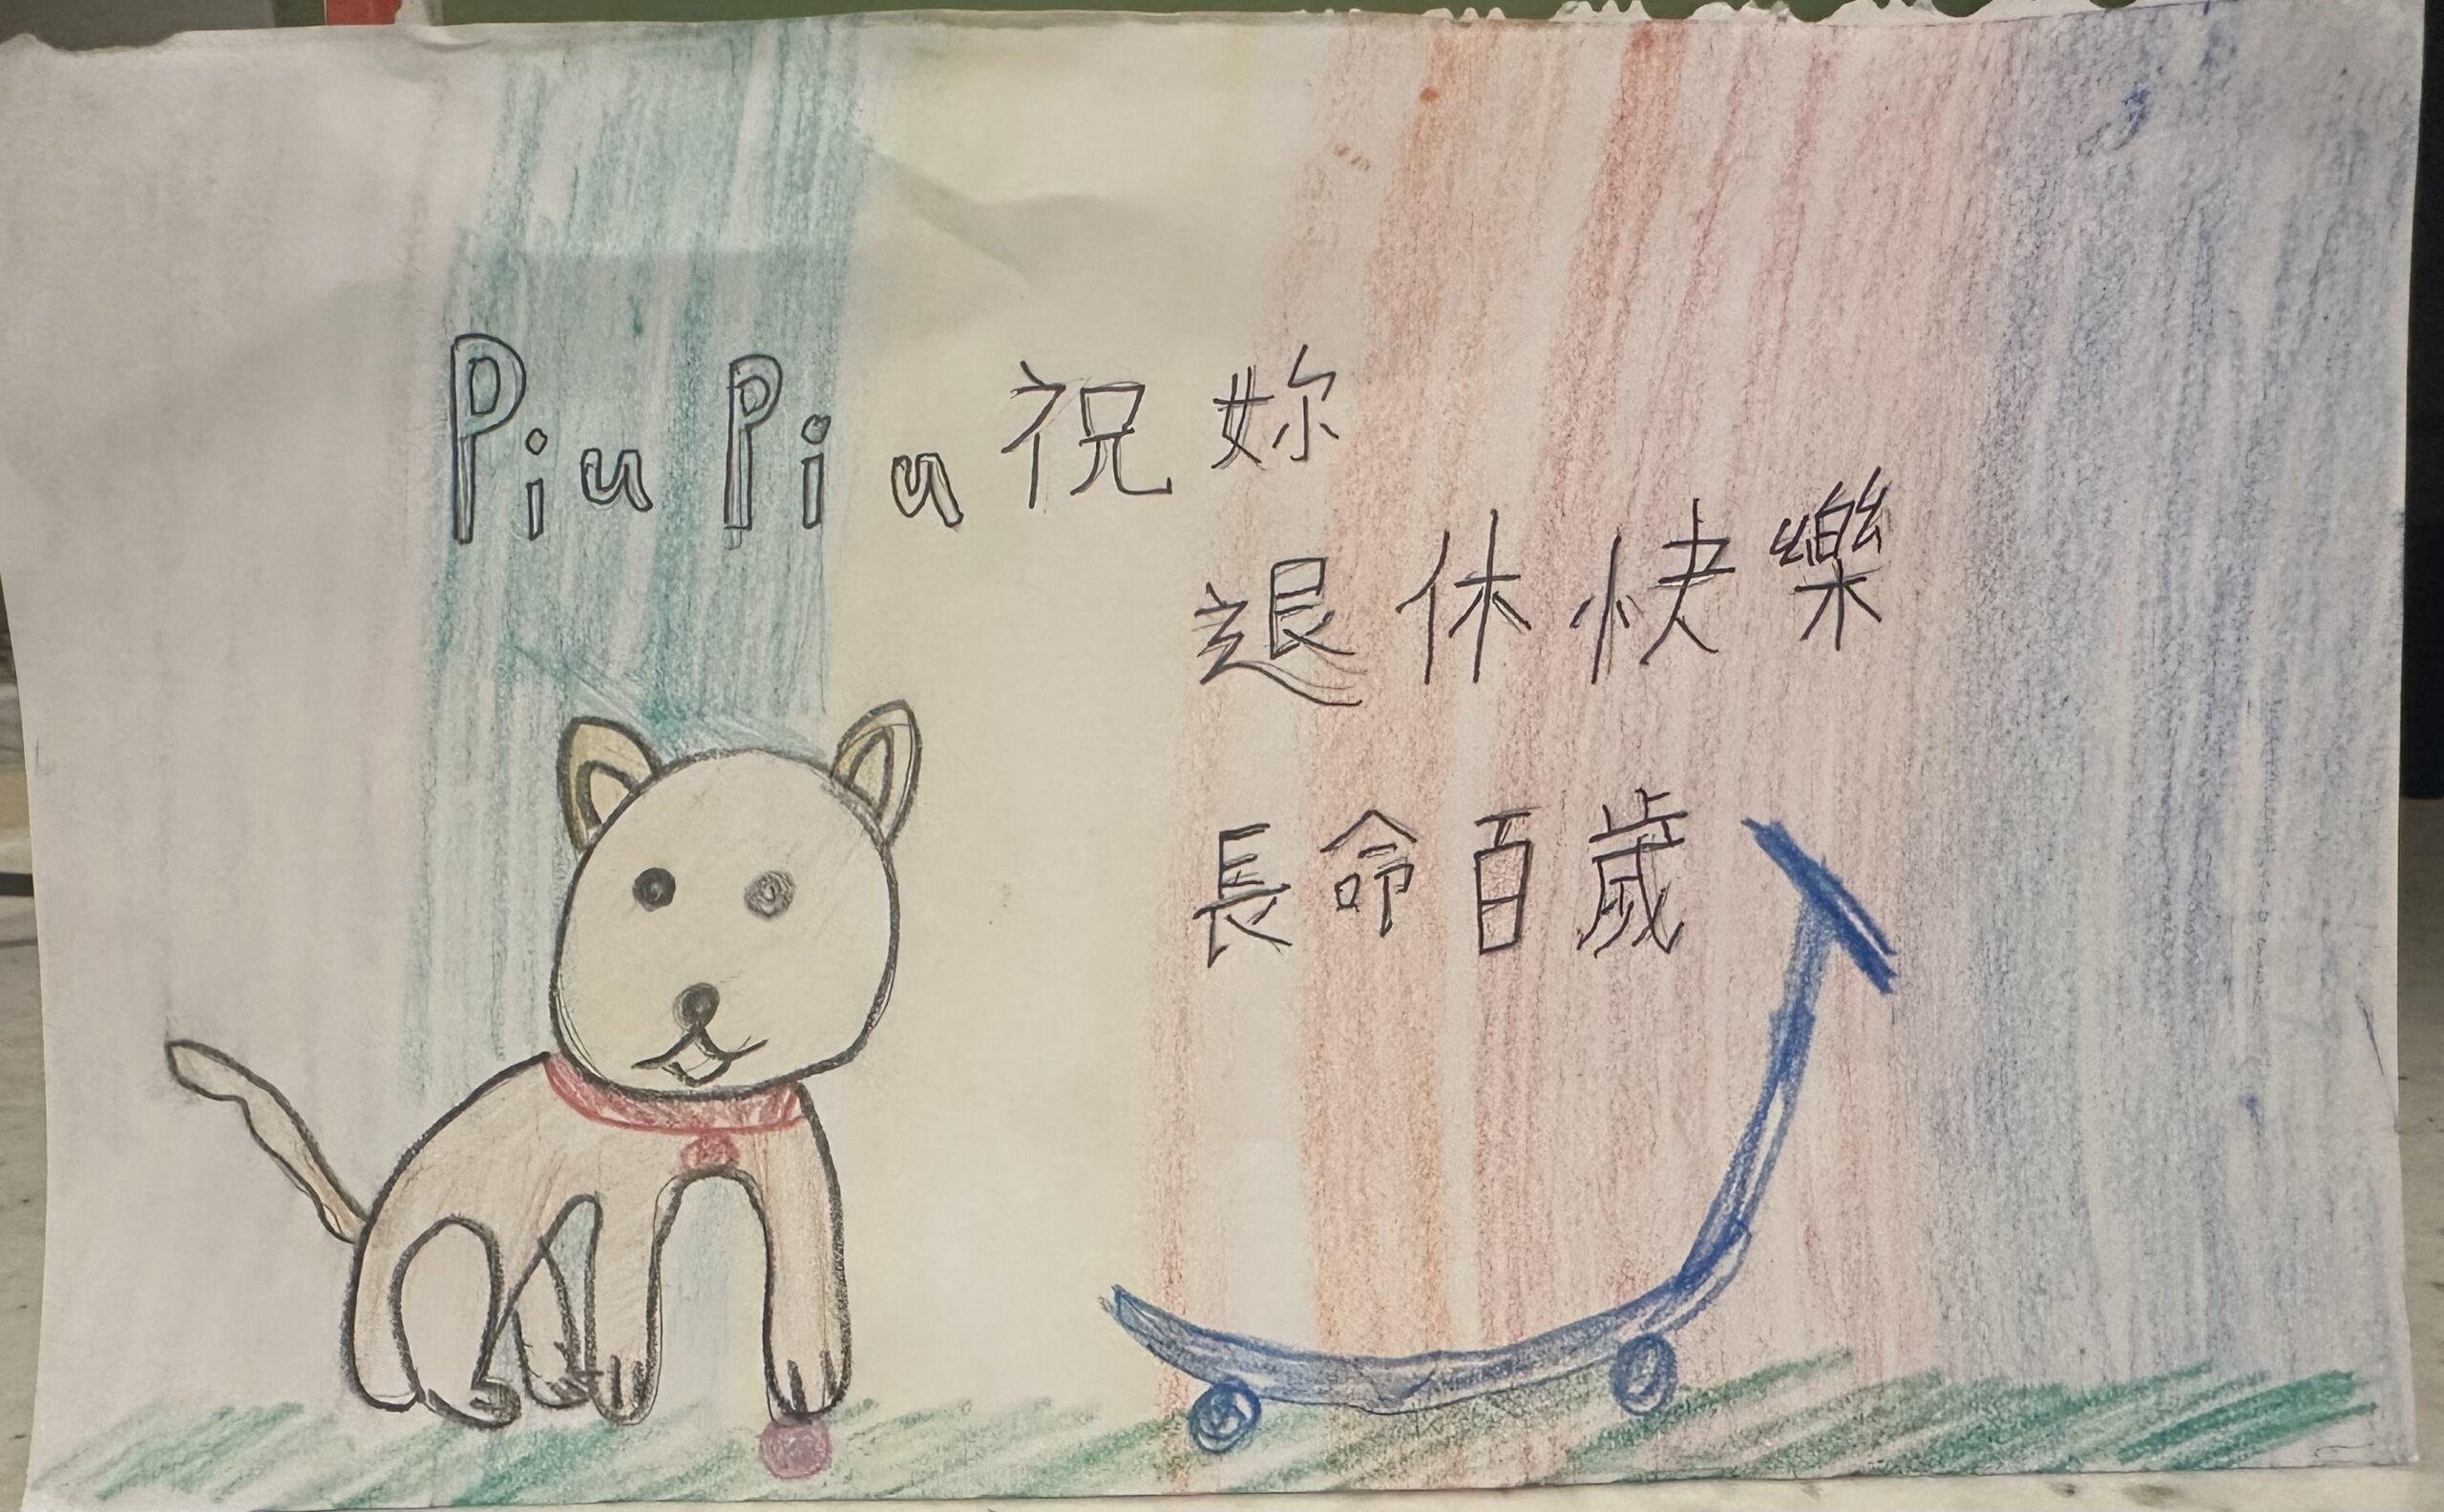 PiuPiu祝妳
退休快樂
長命百歲